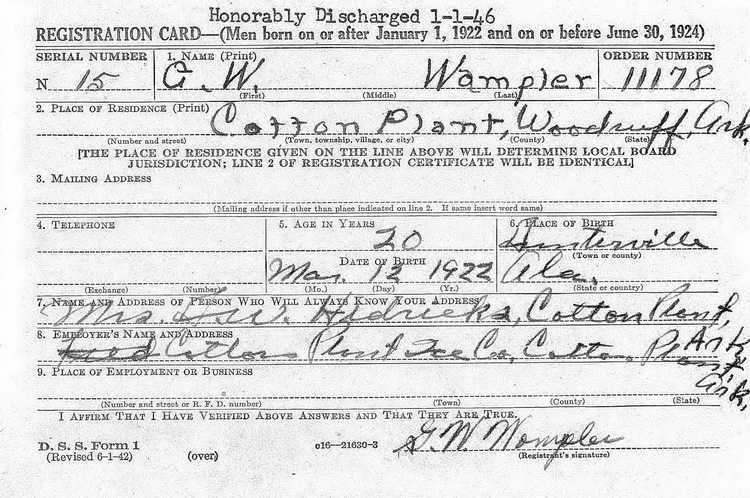 Honorably Discharged 1-1-46
REGISTRATION CARD—(Men born on or after January 1, 1922 and on or before June 30, 1924)
SERIAL NUMBER 1. NAME (Print) ORDER NUMBER
N 15 G. W. Wampler 11178
(First) (Middle) (Last)
2. PLACE OF RESIDENCE (Print)
Cotton Plant, Woodruff, Ark.
(Number and street) (Town, township, village, or city) (County) (State)
[THE PLACE OF RESIDENCE GIVEN ON THE LINE ABOVE WILL DETERMINE LOCAL BOARD
JURISDICTION; LINE 2 OF REGISTRATION CERTIFICATE WILL BE IDENTICAL]
3. MAILING ADDRESS
(Mailing address if other than place indicated on line 2. If same insert word same)
4. TELEPHONE 5. AGE IN YEARS 6. PLACE OF BIRTH
20 Hunterville
DATE OF BIRTH (Town or county)
Mar. 12 1922 Ala.
(Exchange) (Number) (Mo.) (Day) (Yr.) (State or country)
7. NAME AND ADDRESS OF PERSON WHO WILL ALWAYS KNOW YOUR ADDRESS
Mrs. W. Hedricks, Cotton Plant, Ark
8. EMPLOYER'S NAME AND ADDRESS
Cotton Plant Ice Co, Cotton Plant, Ark.
9. PLACE OF EMPLOYMENT OR BUSINESS
(Number and street or R. F. D. number) (Town) (County) (State)
I AFFIRM THAT I HAVE VERIFIED ABOVE ANSWERS AND THAT THEY ARE TRUE.
D. S. S. Form 1
(Revised 6-1-42) (over) o16—21630-3 G. W. Wampler
(Registrant's signature)